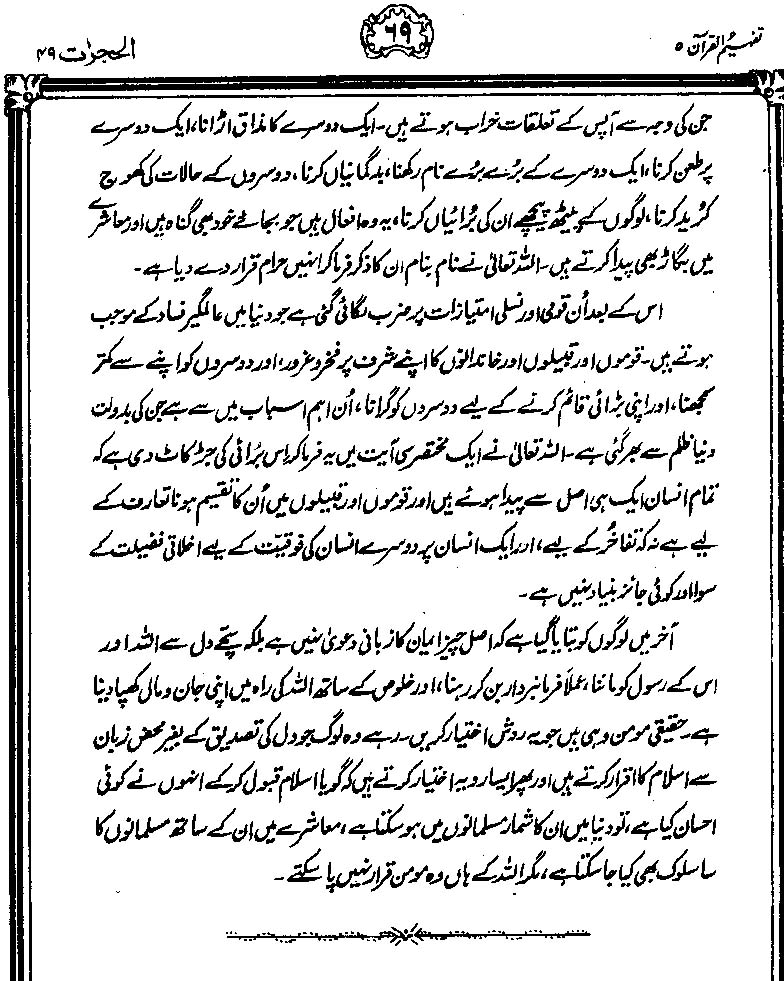 تفہیم القرآن ۵
۶۹
الحجرات ۴۹
جن کی وجہ سے آپس کے تعلقات خراب ہوتے ہیں۔ ایک دوسرے کا مذاق اڑانا، ایک دوسرے
پر طعن کرنا، ایک دوسرے کے بُرے بُرے نام رکھنا، بدگمانیاں کرنا، دوسروں کے حالات کی کھوج
کُرید کرنا، لوگوں کے پیٹھ پیچھے ان کی بُرائیاں کرنا، یہ وہ افعال ہیں جو بجائے خود بھی گناہ ہیں اور معاشرے
میں بگاڑ بھی پیدا کرتے ہیں۔ اللہ تعالیٰ نے نام بنام ان کا ذکر فرما کر انہیں حرام قرار دے دیا ہے۔
اس کے بعد اُن قومی اور نسلی امتیازات پر ضرب لگائی گئی ہے جو دنیا میں عالمگیر فساد کے موجب
ہوتے ہیں۔ قوموں اور قبیلوں اور خاندانوں کا اپنے شرف پر فخر و غرور، اور دوسروں کو اپنے سے کمتر
سمجھنا، اور اپنی بڑائی قائم کرنے کے لیے دوسروں کو گرانا، اُن اہم اسباب میں سے ہے جن کی بدولت
دنیا ظلم سے بھر گئی ہے۔ اللہ تعالیٰ نے ایک مختصر سی آیت میں یہ فرما کر اس بُرائی کی جڑ کاٹ دی ہے کہ
تمام انسان ایک ہی اصل سے پیدا ہوئے ہیں اور قوموں اور قبیلوں میں اُن کا تقسیم ہونا تعارف کے
لیے ہے نہ کہ تفاخُر کے لیے، اور ایک انسان پر دوسرے انسان کی فوقیّت کے لیے اخلاقی فضیلت کے
سوا اور کوئی جائز بنیاد نہیں ہے۔
آخر میں لوگوں کو بتایا گیا ہے کہ اصل چیز ایمان کا زبانی دعویٰ نہیں ہے بلکہ سچّے دل سے اللہ اور
اس کے رسول کو ماننا، عملاً فرمانبردار بن کر رہنا، اور خلوص کے ساتھ اللہ کی راہ میں اپنی جان و مال کھپا دینا
ہے۔ حقیقی مومن وہی ہیں جو یہ روش اختیار کریں۔ رہے وہ لوگ جو دل کی تصدیق کے بغیر محض زبان
سے اسلام کا اقرار کرتے ہیں اور پھر ایسا رویہ اختیار کرتے ہیں کہ گویا اسلام قبول کرکے انہوں نے کوئی
احسان کیا ہے، تو دنیا میں ان کا شمار مسلمانوں میں ہو سکتا ہے، معاشرے میں ان کے ساتھ مسلمانوں کا
سا سلوک بھی کیا جا سکتا ہے، مگر اللہ کے ہاں وہ مومن قرار نہیں پا سکتے۔